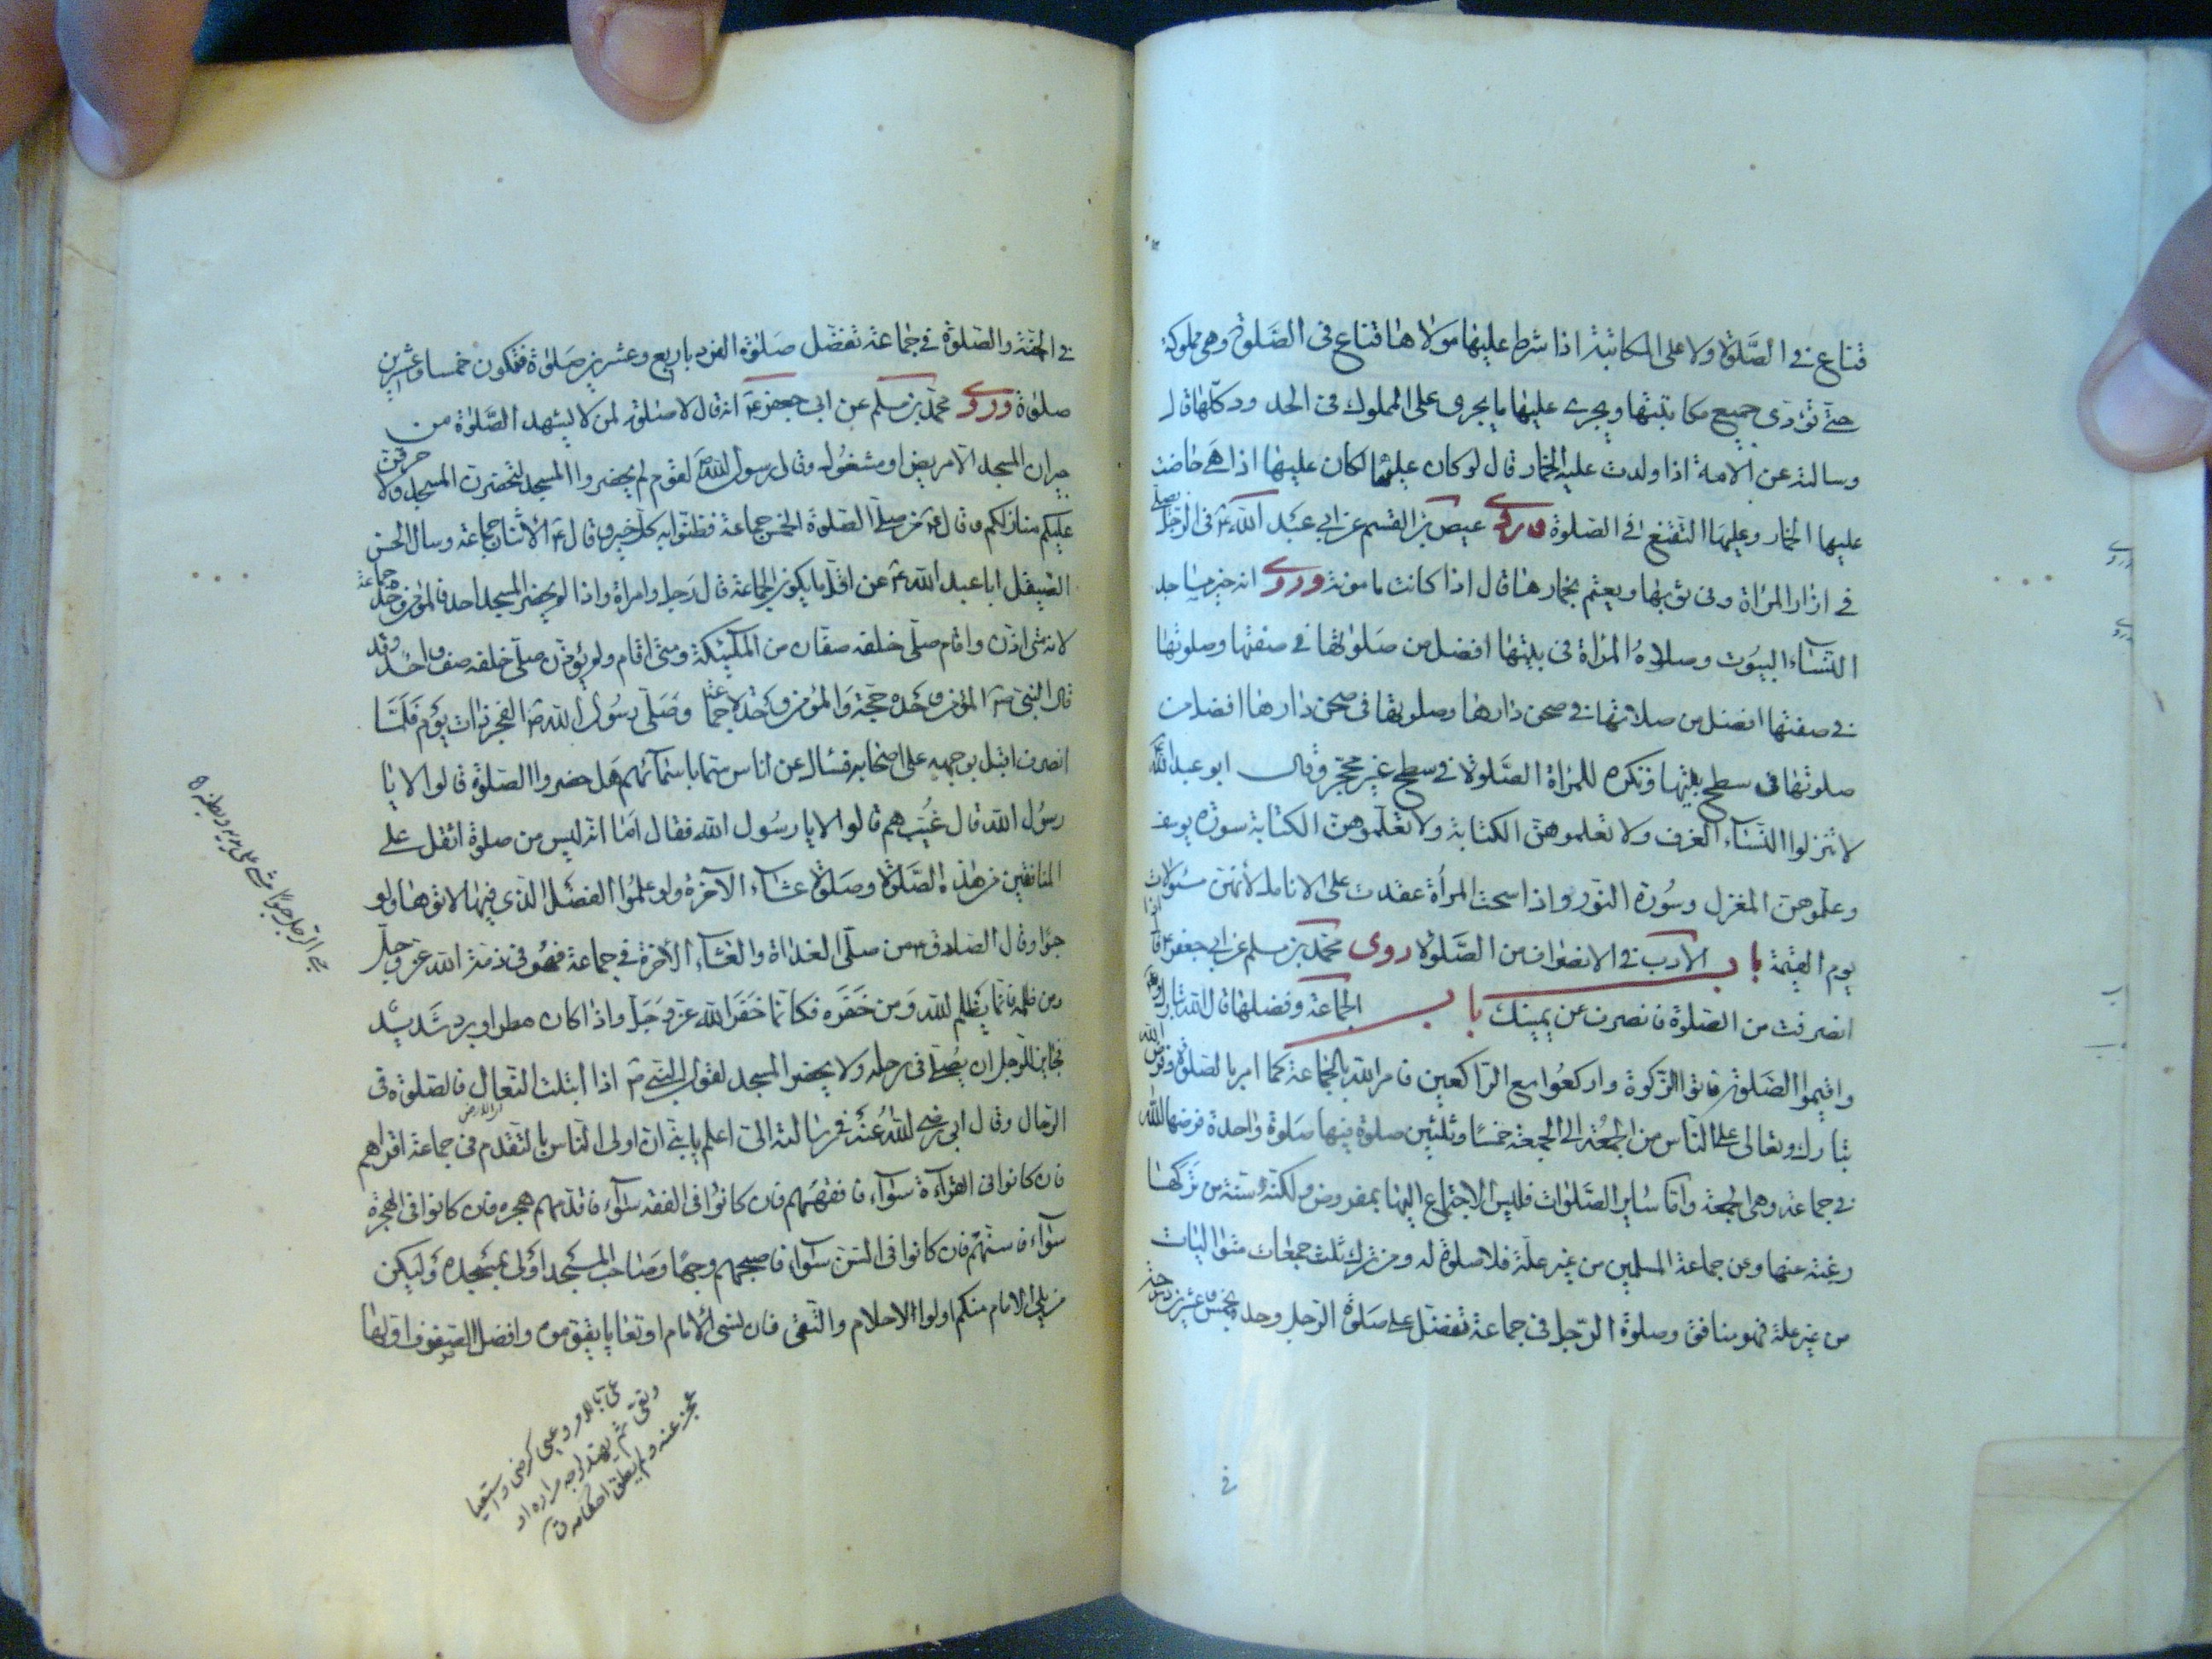 قناع في الصَّلوة ولا على المكاتبة اذا شرط عليها مولاها قناع فى الصَّلوة وهى مملوكة
حتّى تؤدى جميع مكاتبتها ويجرى عليها ما يجرى على المملوك فى الحدود كلّها قال
وسالته عن الامة اذا ولدت عليها الخمار قال لو كان عليها لكان عليها اذا هى حاضت
عليها الخمار وعليها التقنع فى الصلوة وروى عيص بن القسم عن ابى عبد الله ع فى الرجل يصلى
فى ازار المراة وفى ثوبها ويعتم بخمارها قال اذا كانت مامونة وروى انه خير مساجد
النّساء البيوت وصلاةُ المراة فى بيتها افضل من صلوتها فى صفتها وصلوتها
فى صفتها افضل من صلاتها فى صحن دارها وصلوتها فى صحن دارها افضل من
صلوتها فى سطح بيتها وتكره للمراة الصَّلوة فى سطح غير محجّر وقال ابو عبد الله ع
لا تنزلوا النّساء الغرف ولا تعلموهنّ الكتابة ولا تعلّموهنّ الكتابة سورة يوسف
وعلّموهنّ المغزل وسُورة النّور واذا سبحت المرأة عقدت على الانامل لأنهنّ مسؤلات
يوم القيمة باب الأدب فى الانصراف من الصَّلوة روى محمّد بن مسلم عن ابى جعفر ع قال اذا
انصرفت من الصلوة فانصرف عن يمينك باب الجماعة وفضلها قال الله تبارك وتعالى
واقيموا الصَّلوة واتوا الزّكوة واركعُوا مع الرّاكعين فامر الله بالجماعة كما امر بالصلوة وفرض الله
تبارك وتعالى على النّاس من الجمعُة الى الجمعة خمسًا وثلثين صلوة فيها صَلوة واحدة فرضها الله
فى جماعة وهى الجمعة وامّا سُاير الصَّلوات فليس الاجتماع اليها بمفروض ولكنّه سنّة من تركها
رغبة عنها وعن جماعة المسلمين من غير علّة فلا صلوة له ومن ترك ثلث جمعات متواليات
من غير علّة فهو منافق وصلوة الرّجل فى جماعة تفضل على صَلوة الرّجل وحده بخمس وعشرين درجة
فى
فى الجنّة والصّلوة فى جماعة تفضل صَلوة الفرد باربع وعشرين صَلوة فتكون خمسا وعشرين
صلوة وروى محمّد بن مسلم عن ابى جعفر ع انه قال لا صلوة لمن لا يشهد الصَّلوة من
جيران المسجد الّا مريض او مشغُول وقال رسول الله ص لقوم لتحضرنّ المسجد ولاحرقنّ
عليكم منازلكم وقال ع من صلّى الصّلوة الخمس جماعة فظنّوا به كلّ خير وقال ع الاثنان جماعة وسال الحسن
الصّيقل ابا عبد الله ع عن اقلّ ما يكون الجماعة قال رَجل وامراة واذا لم يحضر المسجد احد فالمؤمن وحده جماعة
لانه متى اذّن واقام صلّى خلفه صفّان من الملئكة ومتى اقام ولم يؤذن صلّى خلفه صف واحد وقد
قال النبىّ ص المؤمن وحْدَه حجّة وَالمؤمن وحْدَه جماعة وصَلّى رسُول الله ص الفجر ذات يوم فَلَمّا
انصرف اقبل بوجهه على اصْحابه فسال عن اناس يسمّيهم باسمائهم هَل حضروا الصلوة قالوا لا يا
رسُول الله قال غُيّب هم قالوا لا يا رسُول الله فقال اما انه ليس من صلوة اثقل على
المنافقين من هذه الصَّلوة وصَلوة عشآء الآخرة ولو علمُوا الفضل الذى فيهما لاتوهما ولو
حبوًا وقال الصّادق ع من صلّى الغداة والعشآء الآخرة فى جماعة فهُو فى ذمّة الله عزّ وجلّ
ومن ظلمه فانّما يظلم الله وَمن حَقّره فكانّما حقّر الله عزّ وَجَلّ واذا كان مطر او برد شديد
فجايز للرّجل ان يصلّى فى رحله ولا يحضر المسجد لقول النّبى ص اذا ابتلّت النّعال فالصلوة فى
الرّحال وقال ابى رضى اللهُ عنه فى رسالته الىّ اعلم يا بنىّ انّ اولى النّاس بالتّقدم فى جماعة اقراهم
فان كانوا فى القراءة سوآء فافقههم فان كانوا فى الفقه سَوآء فاقدمهم هجرة فان كانوا فى الهجرة
سوآء فاسنّهم فان كانوا فى السّن سوآء فاصبحهم وجهًا وصَاحب المسْجد اَولى بمسْجده وَليكن
من يلى الامام منكم اولوا الاحلام والتّقى فان نسى الامام او تعايا يقومه وافضل الصفوف اولها
عجز عنه ولم يطق احكامه ق